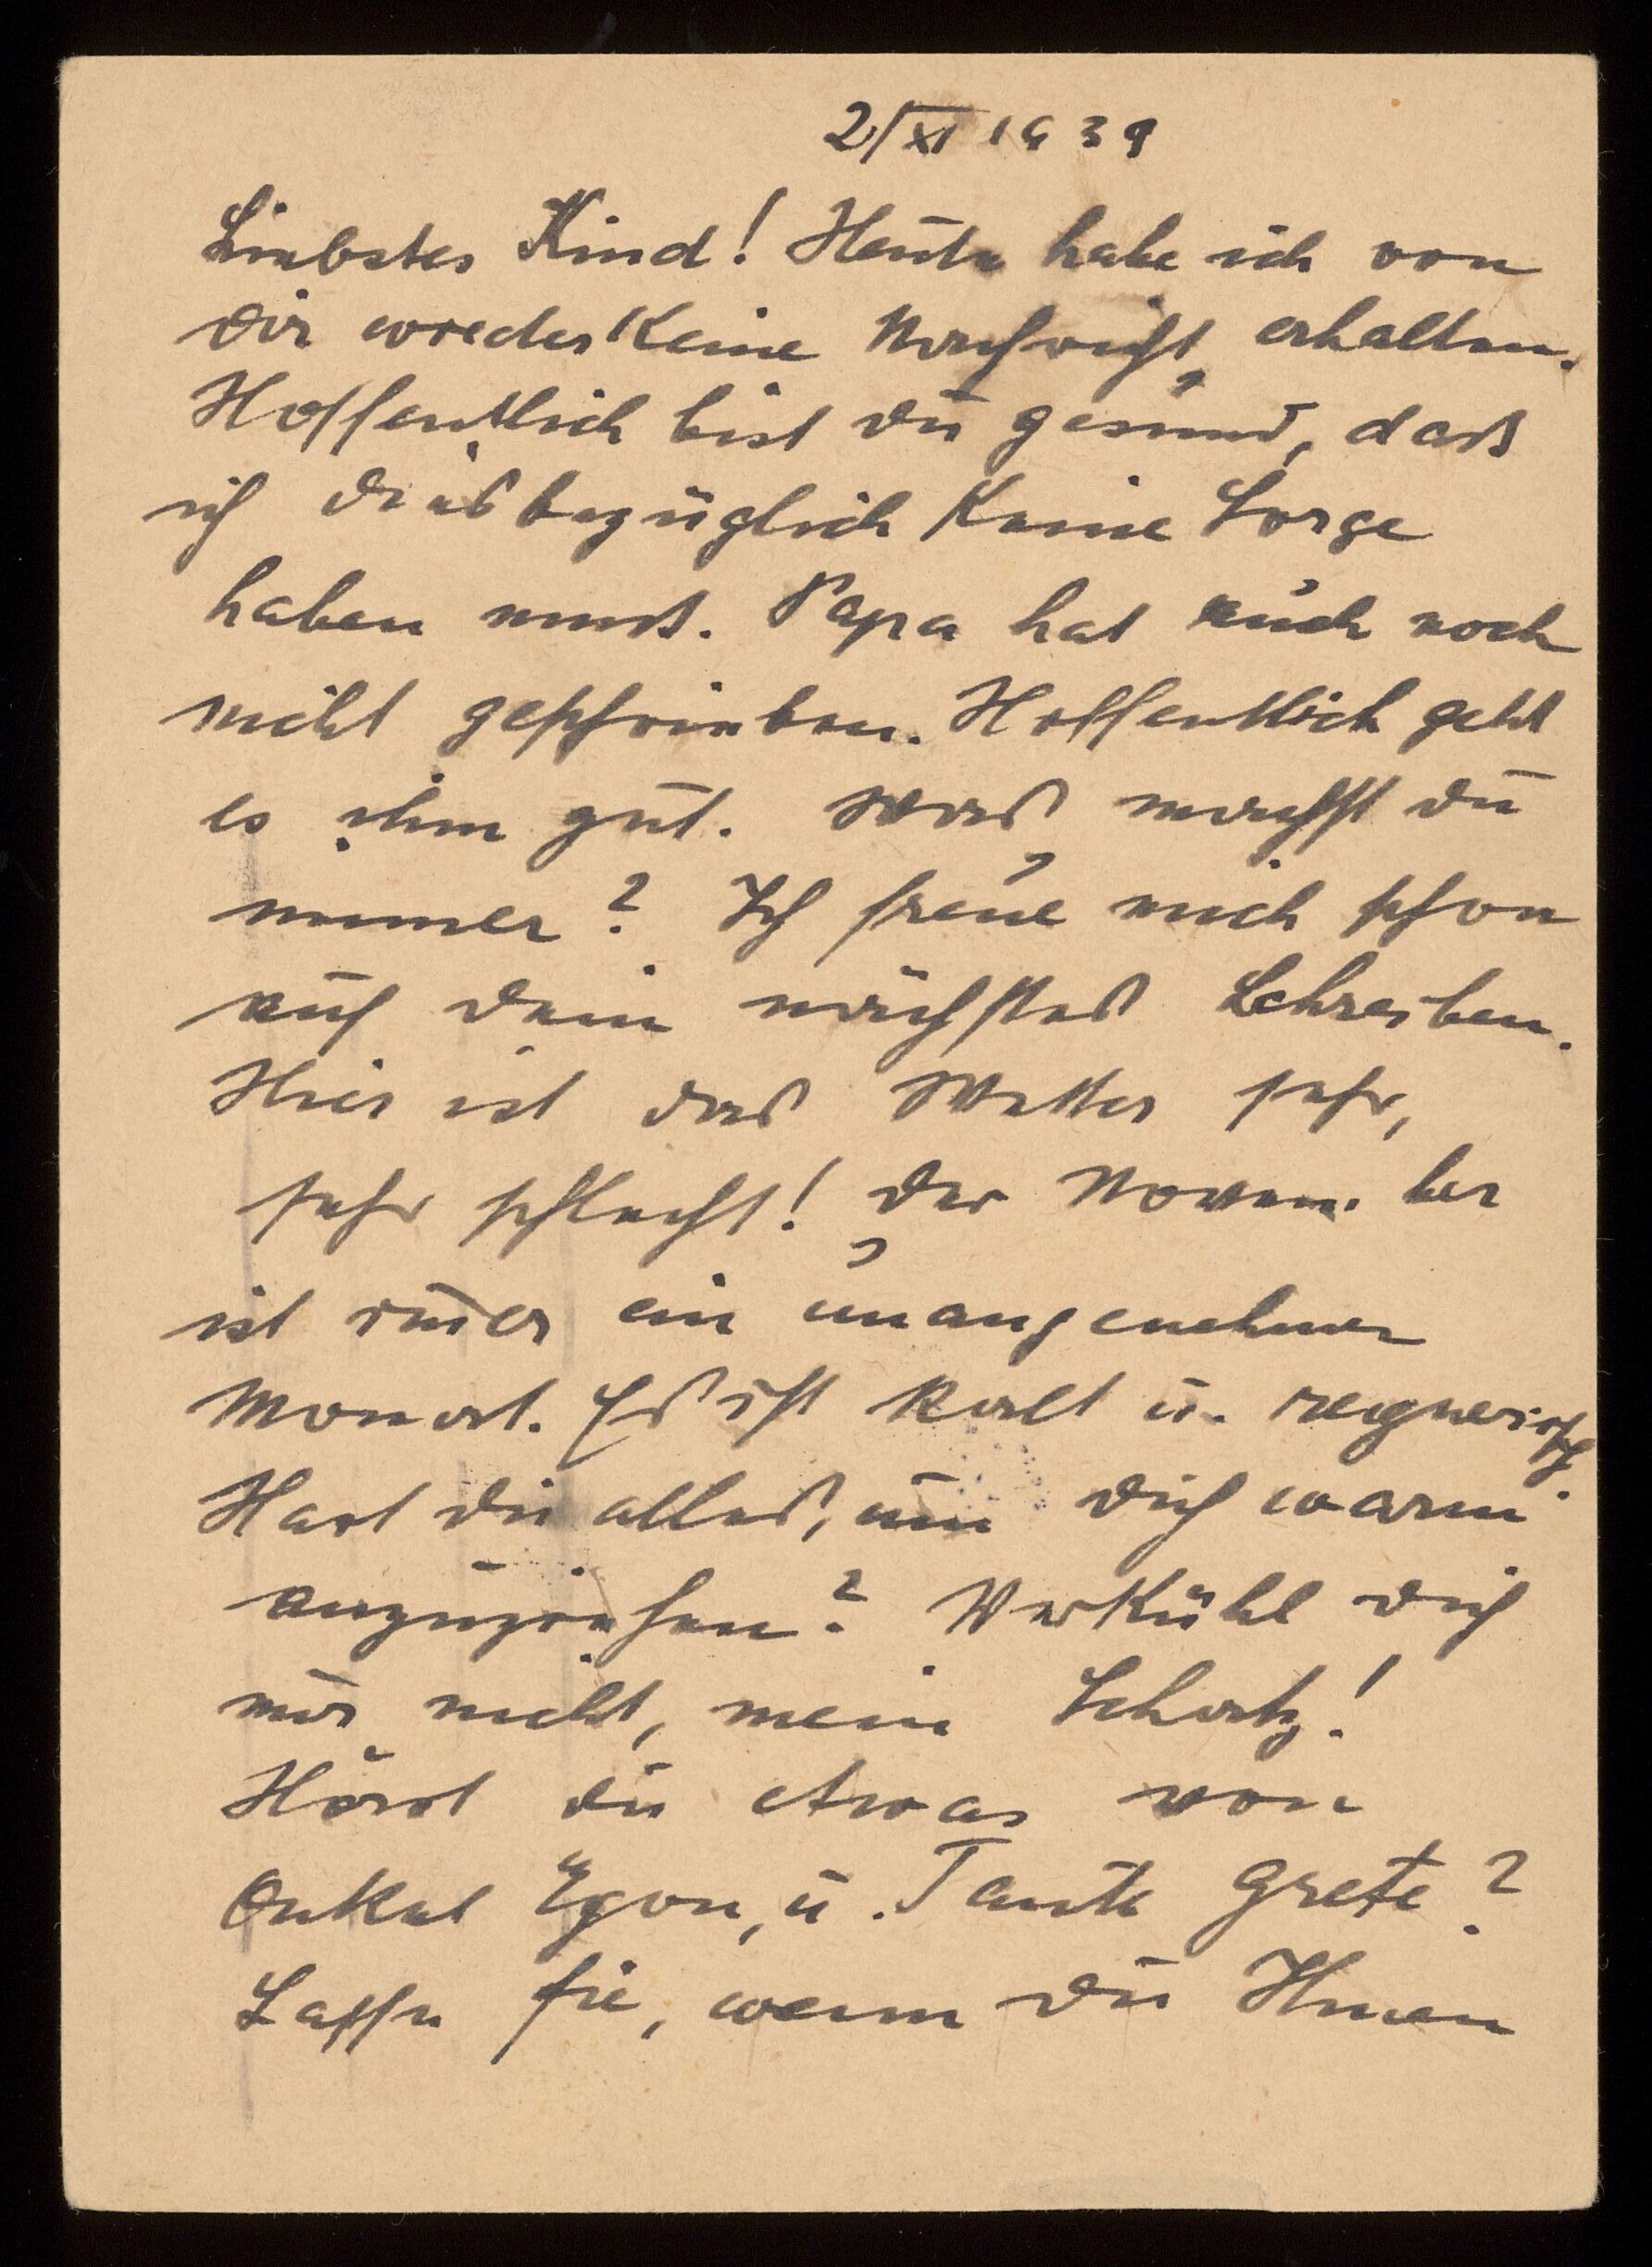 2/XI 1939
Liebstes Kind! Heute habe ich von
Dir wieder keine Nachricht erhalten.
Hoffentlich bist Du gesund, daß
ich diesbezüglich keine Sorge
haben muß. Papa hat auch noch
nicht geschrieben. Hoffentlich geht
es ihm gut. Was machst Du
immer? Ich freue mich schon
auf Dein nächstes Schreiben.
Hier ist das Wetter sehr,
sehr schlecht! Der November
ist immer ein unangenehmer
Monat. Es ist kalt u. regnerisch.
Hast Du alles, um Dich warm
anzuziehen? Verkühl Dich
mir nicht, mein Schatz!
Hörst Du etwas von
Onkel Egon, u. Tante Grete?
Lasse sie, wenn Du Ihnen